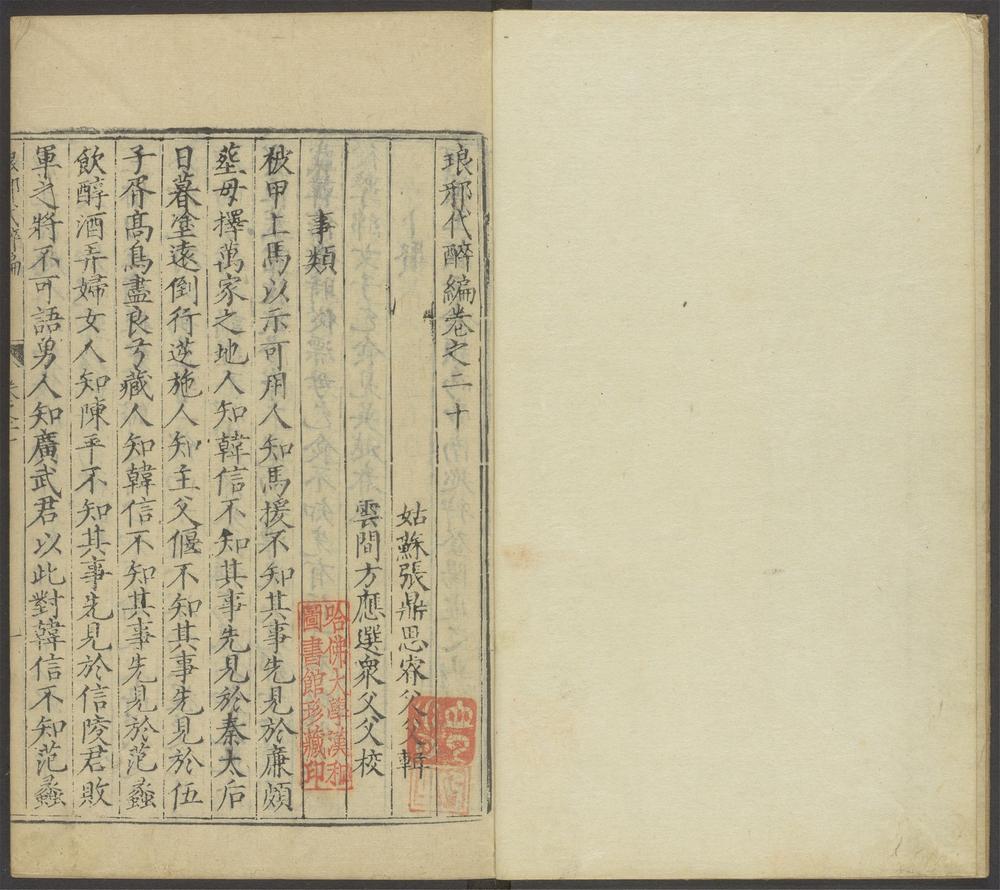 琅邪代醉編卷之二十
姑蘇張鼎思睿父父輯
雲間方應選衆父父校
事類
被甲上馬以示可用人知馬援不知其事先見於廉頗
塟母擇萬家之地人知韓信不知其事先見於秦太后
日暮塗遠倒行逆施人知主父偃不知其事先見於伍
子胥高鳥盡良弓藏人知韓信不知其事先見於范蠡
飲醇酒弄婦女人知陳平不知其事先見於信陵君敗
軍之將不可語勇人知廣武君以此對韓信不知范蠡
哈佛大學漢和
圖書館珍藏印